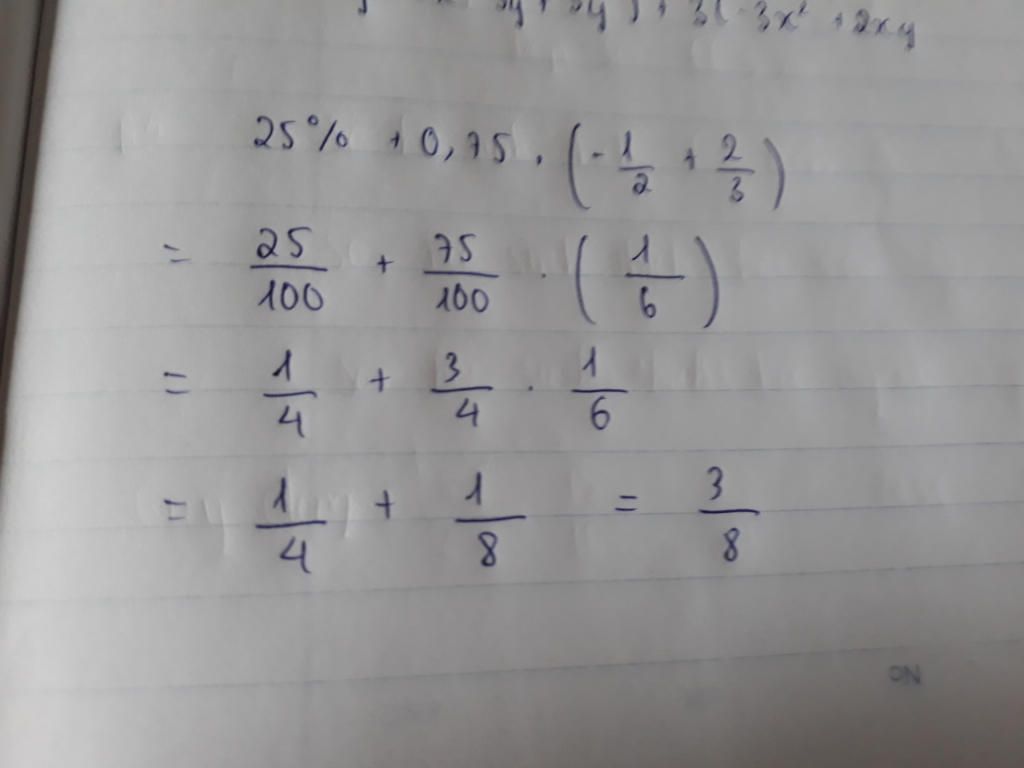 + 3(-3x² + 2xy
25% + 0,75 . (-1/2 + 2/3)
= 25/100 + 75/100 . (1/6)
= 1/4 + 3/4 . 1/6
= 1/4 + 1/8 = 3/8
NO